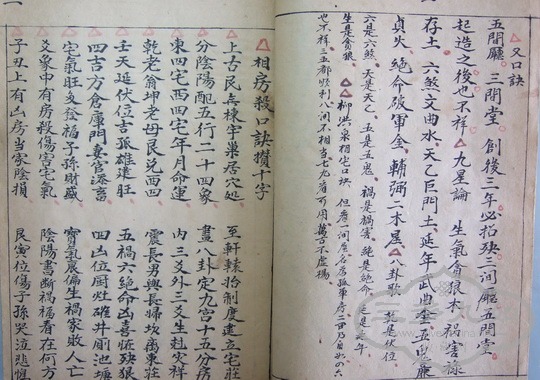 又口訣
五間廳 三間堂 創後三年必招殃三間廳五間堂
起造之後也不祥 九星論 生氣貪狼木 禍害祿
存土 六煞文曲水 天乙巨門土 延年武曲金五鬼廉
貞火 絕命破軍金 輔弼二木星 八卦歌 乾是伏位
六是六煞 天是天乙 五是五鬼 禍是禍害 絕是絕命 延是延年
生是貪狼 柳洪泉相宅口訣 但看一間屋 孤單房
也不祥三五都順利八間不相當七九看可用萬古不虛揚
相房殺口訣攢十字
上古民無棟宇巢居穴處 至軒轅抬制度建立宅莊
分陰陽配五行二十四象 畫八卦定九宮十五分房
東四宅西四宅年月命運 內三爻外三爻生尅災祥
乾老翁坤老母艮兌西四 震長男巽長婦坎離東莊
天延伏位吉孤雄建旺 五禍六絕命凶喜 殃狼
四吉方倉庫門妻官添畜 四凶位厨灶碓井廁池塘
宅氣旺爻發福子孫財盛 宅氣衰偏生禍家敗人亡
爻象中有房殺傷害宅氣 陰陽書斷禍福看在何方
子丑上有凶房當家陰損 艮寅位傷子孫哭泣悲